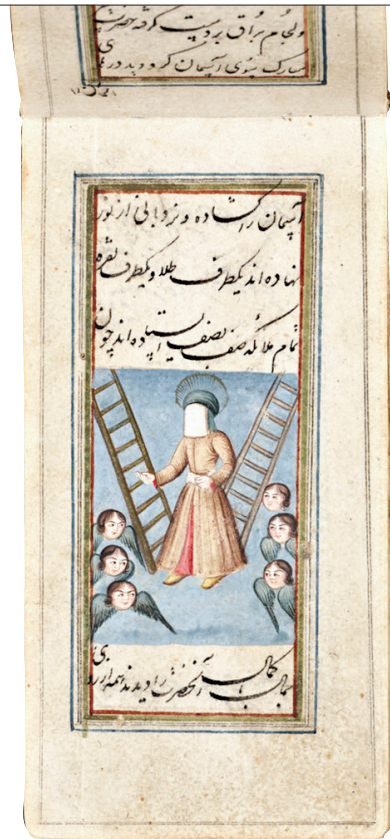 ولجام براق بردست گرفته حضرت
مبارک بسوی آسمان کرد و دید در
آسمان را گشاده و نردبانی از نور
نهاده اند یکطرف طلا و یکطرف نقره
تمام ملائکه صف بصف ایستاده اند چون
جمال آنحضرت را دیدند همه از روی